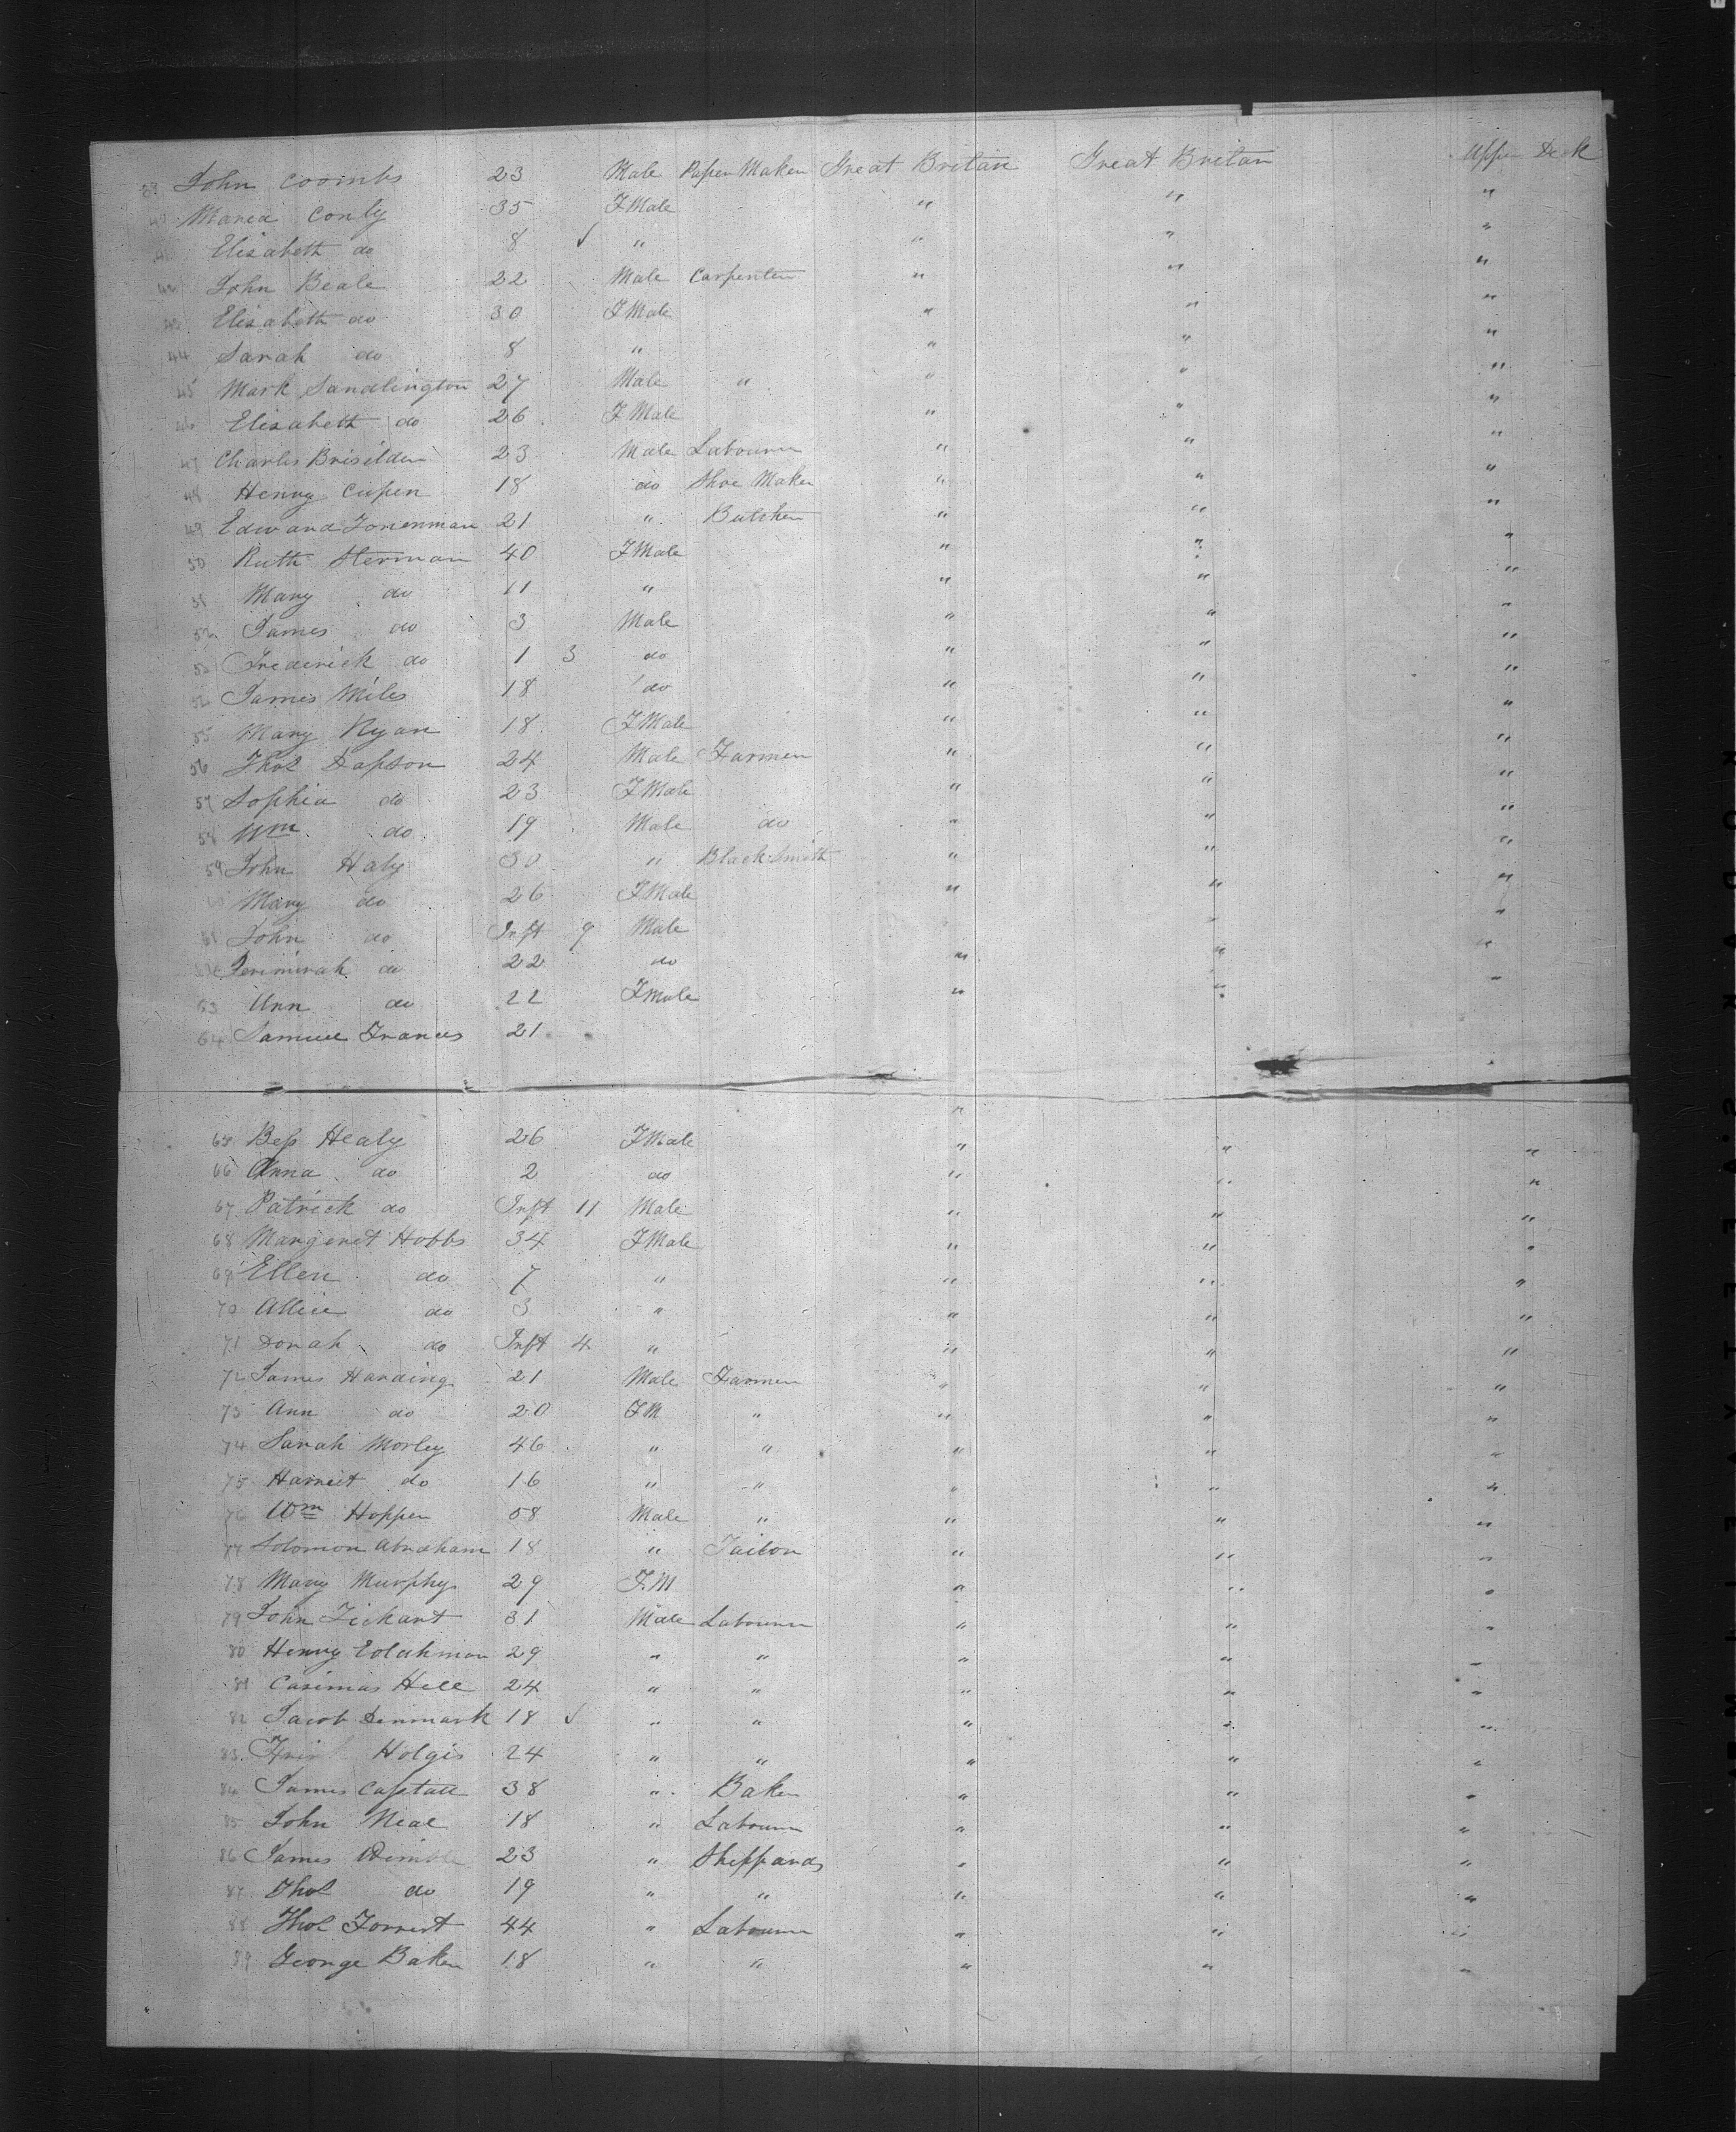 39 John Coombs 23 Male Paper Maker Great Britan Great Britan Upper Deck
40 Marea Conly 35 FMale " " "
41 Elisabeth do 8 ✓ " " " "
42 John Beale 22 Male Carpenter " " "
43 Elisabeth do 30 FMale " " "
44 Sarah do 8 " " " "
45 Mark Sandlington 27 Male " " " "
46 Elisabeth do 26 FMale " " "
47 Charles Briselden 23 Male Labourer " " "
48 Henry Cupen 18 do Shoe Maker " " "
49 Edward 21 " Butcher " " "
50 Ruth Sterman 40 FMale " " "
51 Mary do 11 " " " "
52 James do 3 Male " " "
53 Frederick do 1 3 do " " "
54 James Miles 18 do " " "
55 Mary Ryan 18 FMale " " "
56 Thos Dapson 24 Male Farmer " " "
57 Sophia do 23 FMale " " "
58 Wm do 19 Male do " " "
59 John Haly 30 " Black Smith " " "
60 Mary do 26 FMale " " "
61 John do Inft 9 Male " "
62 do 22 do " " "
63 Ann do 22 FMale " " "
64 Samuel Frances 21
"
65 Bess Healy 26 FMale " " "
66 Anna do 2 do " " "
67 Patrick do Inft 11 Male " " "
68 Margeret Hobbs 34 FMale " " "
69 Ellen do 7 " " " "
70 Allice do 3 " " " "
71 Donah do Inft 4 " " " "
72 James Harding 21 Male Farmer " " "
73 Ann do 20 FM " " " "
74 Sarah Morley 46 " " " " "
75 Harriet do 16 " " " " "
76 Wm Hopper 58 Male " " " "
77 Solomon Abraham 18 " Tailor " " "
78 Mary Murphy 29 F.M " " "
79 John Zickart 31 Male Labourer " " "
80 Henry 29 " " " " "
81 Casimas Hill 24 " " " " "
82 Jacob Denmark 18 ✓ " " " " "
83 Holgis 24 " " " " "
84 James Capstall 38 " Baker " " "
85 John Neal 18 " Labourer " " "
86 James Wimble 23 " Sheppards " " "
87 Thos do 19 " " " " "
88 Thos Forrest 44 " Labourer " " "
89 George Baker 18 " " " " "